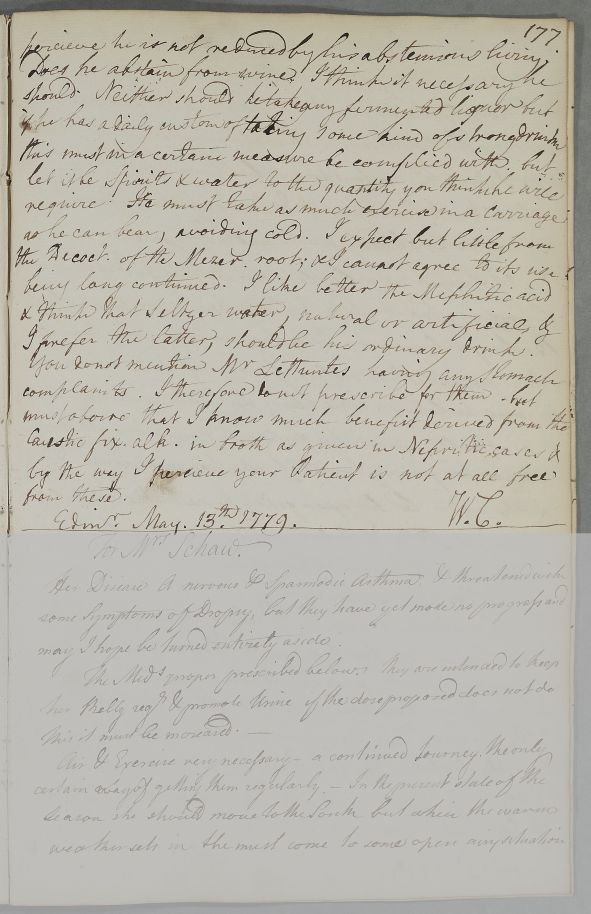 177
percieve he is not reduced by his abstemious living.
Does he abstain from wine? I think it necessary he
should. Neither should he take any fermented liquor but
if he has a daily custom of taking some kind of strong drink
this must in a certain measure be complied with but
let it be Spirits & water to the quantity you think he will
require. He must take as much exercise in a carriage
as he can bear, avoiding cold. I expect but little from
the Decoct. of the Mezer. root; & I cannot agree to its use
being long continued. I like better the Mephitic acid
& think that Seltzer water, natural or artificial, &
I prefer the latter, should be his ordinary drink.
You do not mention Mr Lethuntes having any Stomach
complaints. I therefore do not prescribe for them but
must observe that I know much benefit derived from the
Caustic fix. alk. in broth as given in Nephritic cases &
by the way I percieve your Patient is not at all free
from these.
Edinr. May. 13th 1779. W.C.
For Mrs Schaw.
Her Disease A nervous & Spasmodic Asthma & threatened with
some Symptoms of Dropsy, but they have yet made no progress and
may I hope be turned entirely aside.
The Meds proper prescribed below. They are intended to keep
her Belly regr & promote Urine if the dose proposed does not do
this it must be increased. —
Air & Exercise very necessary – a continued Journey the only
certain way of getting them regularly. – In the present state of the
Season she should move to the South but when the warm
weather sets in she must come to some open airy situation